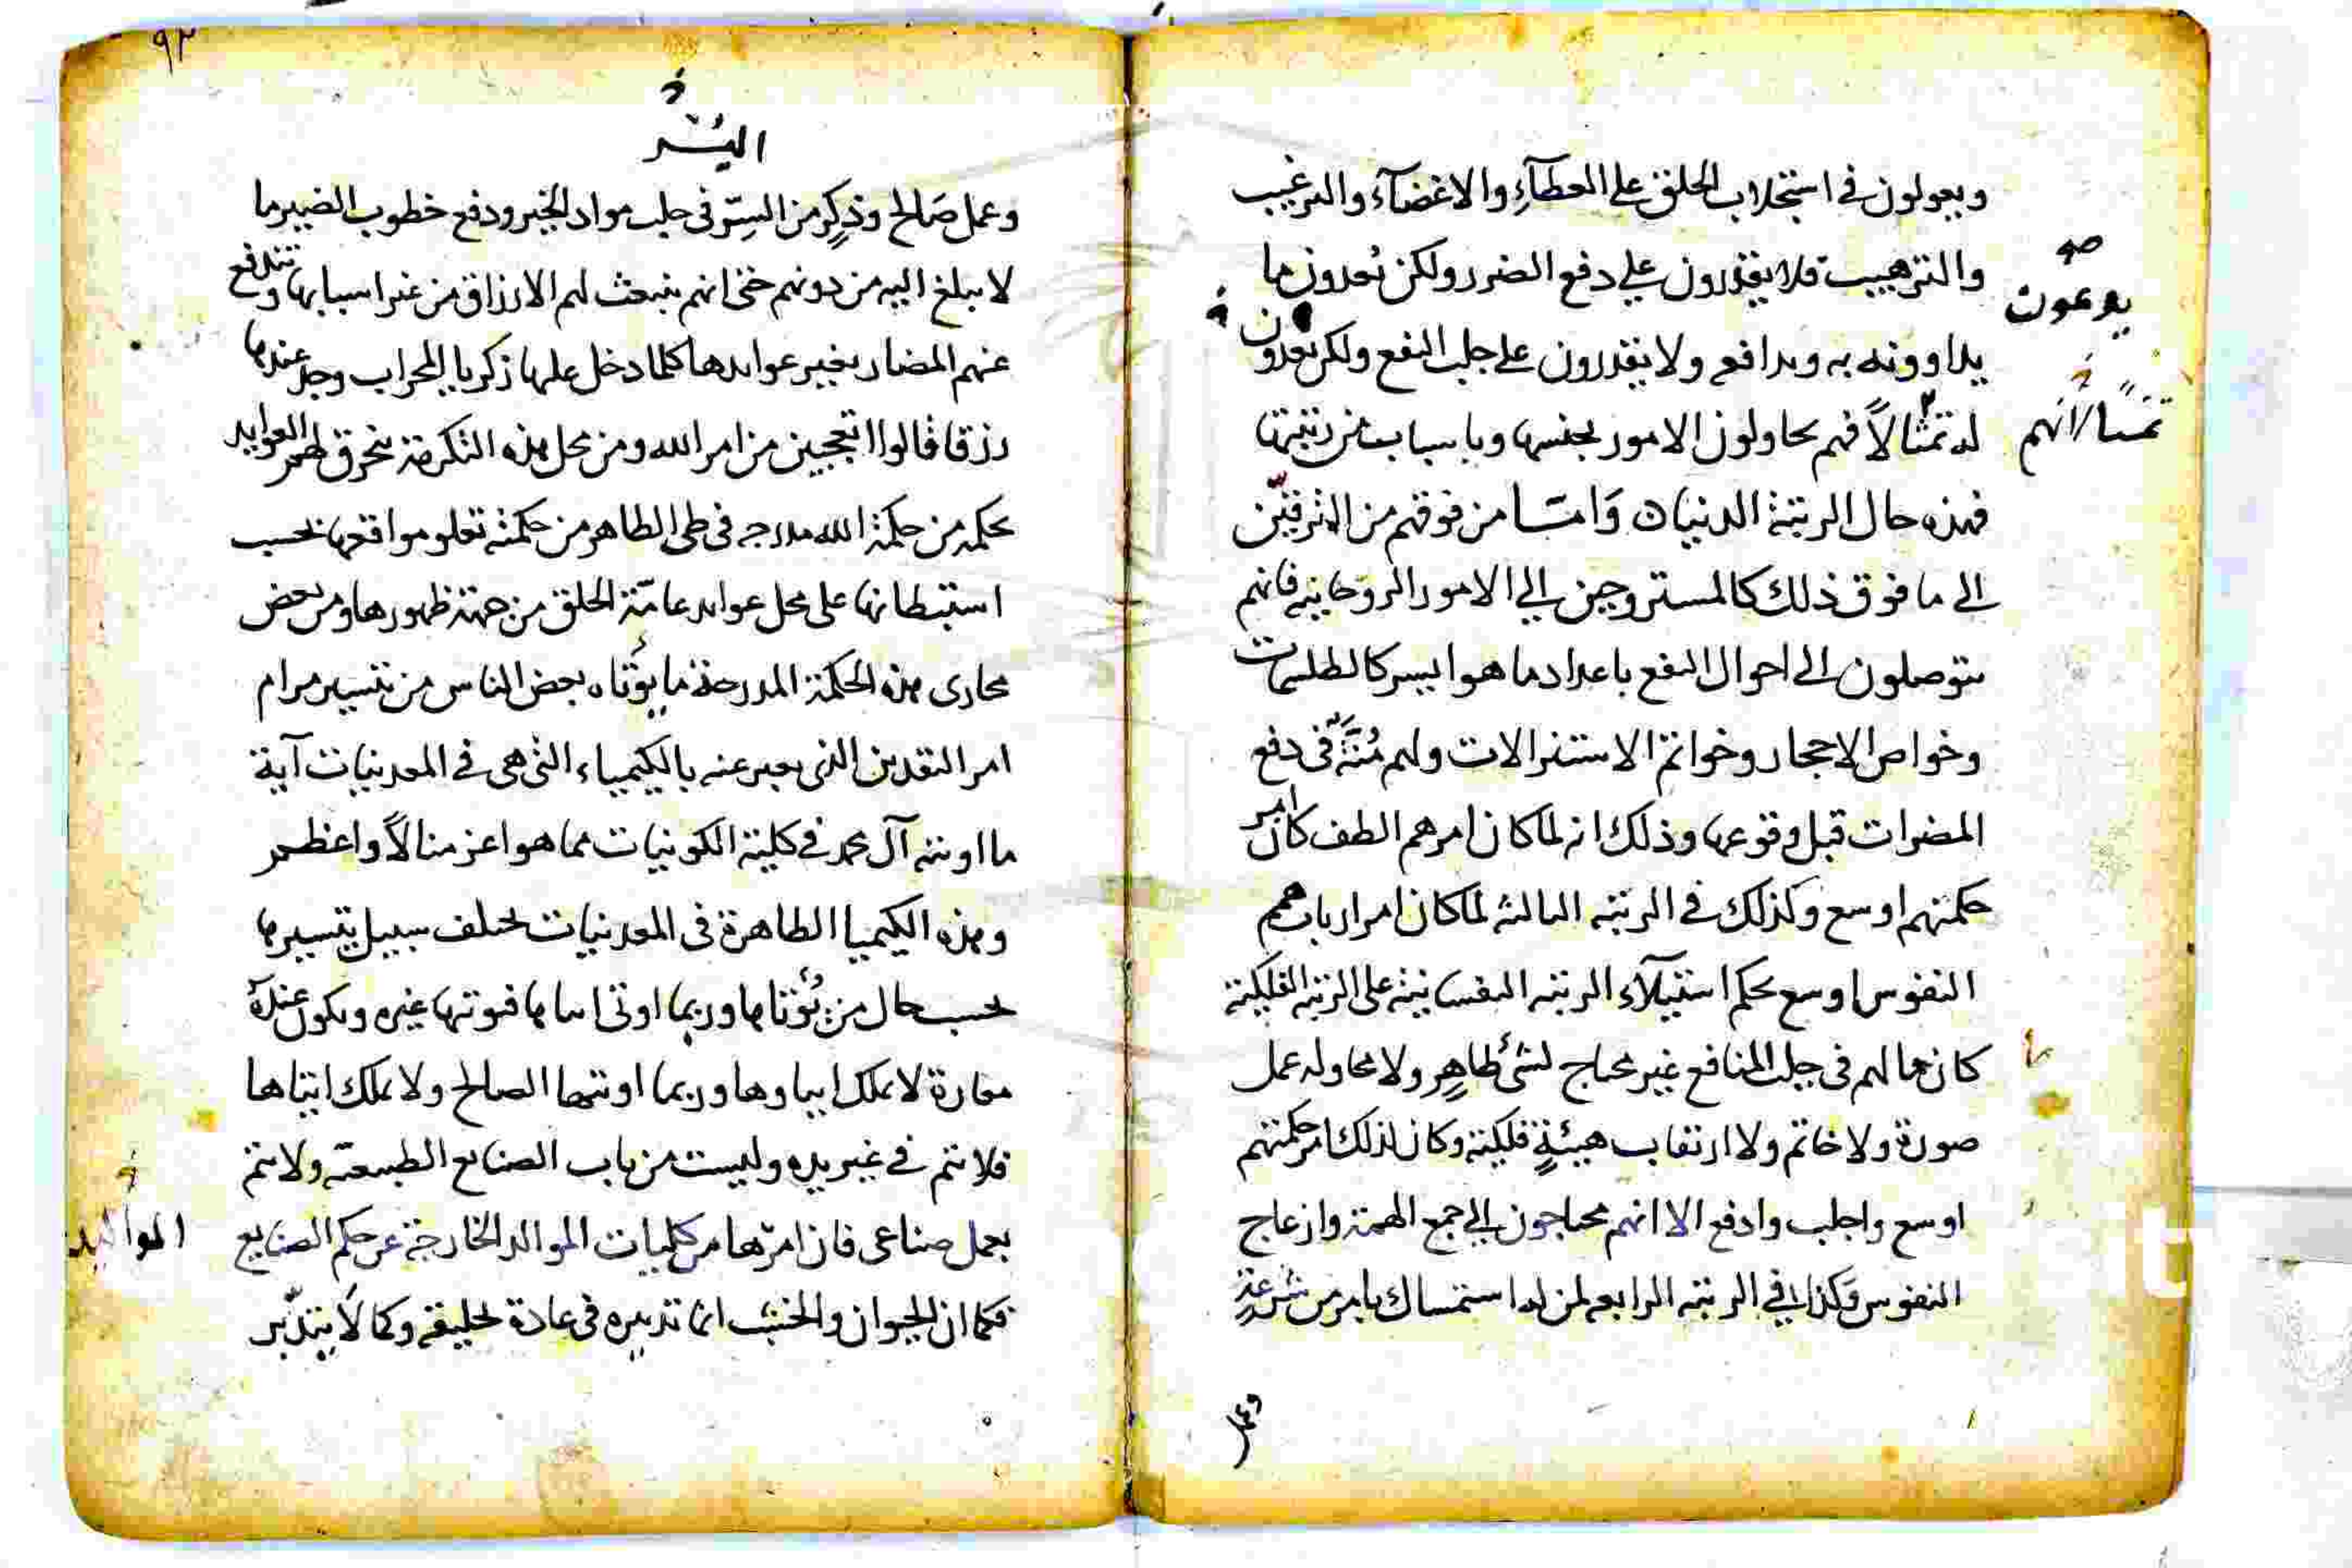 ويعولون في استجلاب الخلق على العطآء والاغضآء والترغيب
والترهيب فلا يقدرون على دفع الضرر ولكن يُعدون ما
يداوونه به ويدافع ولا يقدرون على جلب النفع ولكن يعدون
له تمثالاً فهم يحاولون الامور بجنسها وباسباب من رتبتها
فهذه حال الرتبة الدنيا وامّا من فوقهم من المترقّين
الى ما فوق ذلك كالمستروحين الى الامور الروحانيه فانهم
يتوصلون الى احوال النفع باعداد ما هو ايسر كالطلسمات
وخواص الاحجار وخواتم الاستنزالات ولهم مُنَّةٌ في دفع
المضرات قبل وقوعها وذلك انه لما كان امرهم الطف كان امر
حكمتهم اوسع وكذلك في الرتبه الثالثه لما كان امر اربابهم
النفوس اوسع بحكم استيلآء الرتبه النفسانية على الرتبه الفلكية
كان حالهم في جلب المنافع غير محتاج لشئ ظاهر ولا محاوله عمل
صورة ولا خاتم ولا ارتقاب هيئةٍ فلكية وكان لذلك امر حكمتهم
اوسع واجلب وادفع الا انهم محتاجون الى جمع الهمة وازعاج
النفوس وكذا في الرتبه الرابعه لمن له استمساك بامر من شرعةٍ
وعمل
صه
يدعون
انهم
٩٢
اليُسْر
وعمل صَالح وذِكرٍ من السِرّ في جلب مواد الخير ودفع خطوب الضير ما
لا يبلغ اليه من دونهم حتى انهم تنبعث لهم الارزاق من غير اسبابها وتندفع
عنهم المضار بغير عوايدها كلما دخل عليها زكريا المحراب وجد عندها
رزقا قالوا اتعجبين من امر الله ومن محل هذه التكرمة تخرق لهم العوايد
بحكمه من حكمة الله مدرجه في طي الظاهر من حكمته تعلو مواقعها بحسب
استبطانها على محل عوايد عامّة الخلق من جهة ظهورها ومن بعض
مجارى هذه الحكمة المدرجة ما يؤتاه بعض الناس من تيسير مرام
امر النقدين الذي يعبر عنه بالكيمياء التي هي في المعدنيات آية
ما اوتيه آل محمد في كلية الكونيات مما هو اعز منالاً واعظم
وهذه الكيميا الظاهرة في المعدنيات تختلف سبيل تيسيرها
بحسب حال من يُؤتاها وربما اوتى اياها فيوتيها غيره ويكون عنده
معارة لا يملك ايتاوها وربما اوتيها الصالح ولا يملك ايتاها
فلا تتم في غير يده وليست من باب الصنايع الطبيعيه ولا تتم
بعمل صناعى فان امرها من كليات الموالد الخارجة عن حكم الصنايع
فكما ان الحيوان والخشب انما تدبيره في عادة خليقه وكما لا يتدبّر
المواليد